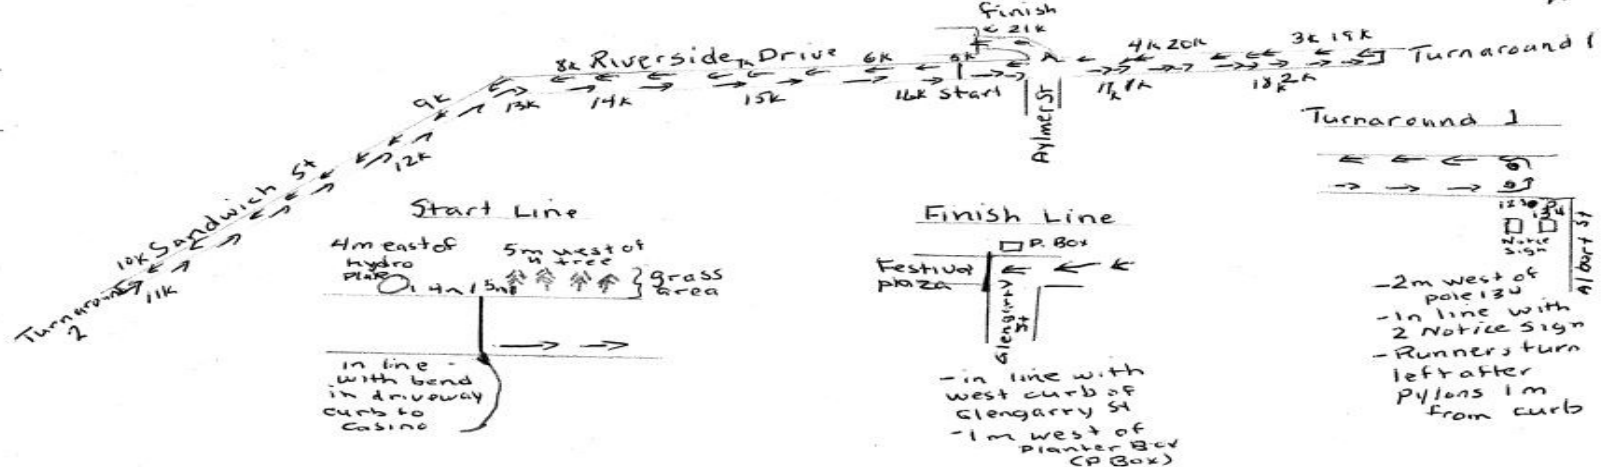 finish
← 21k
8k Riverside Drive 6k
7k
5k
4k 20k
3k 19k
Turnaround 1
9k
13k
14k
15k
16k Start
Aylmer St
17k 1k
18k 2k
12k
Sandwich St
10k
11k
Turnaround 2
Start Line
4m east of
hydro
5m west of
tree
4m
5m
grass
area
in line
with bend
in driveway
curb to
casino
Finish Line
P. Box
Festival
plaza
Glengarry
St
- in line with
west curb of
Glengarry St
- 1m west of
Planter Box
(P Box)
Turnaround 1
Notice
sign
Albert St
- 2m west of
pole 134
- In line with
2 Notice Sign
- Runners turn
left after
Pylons 1m
from curb